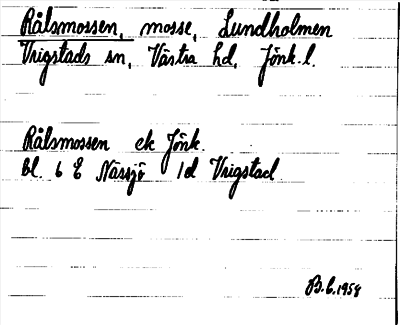 Rålsmossen, mosse, Lundholmen
Vrigstads sn, Västra hd, Jönk. l.
Rålsmossen ek Jönk.
bl. 6 E Nässjö 1d Vrigstad
B.C. 1958